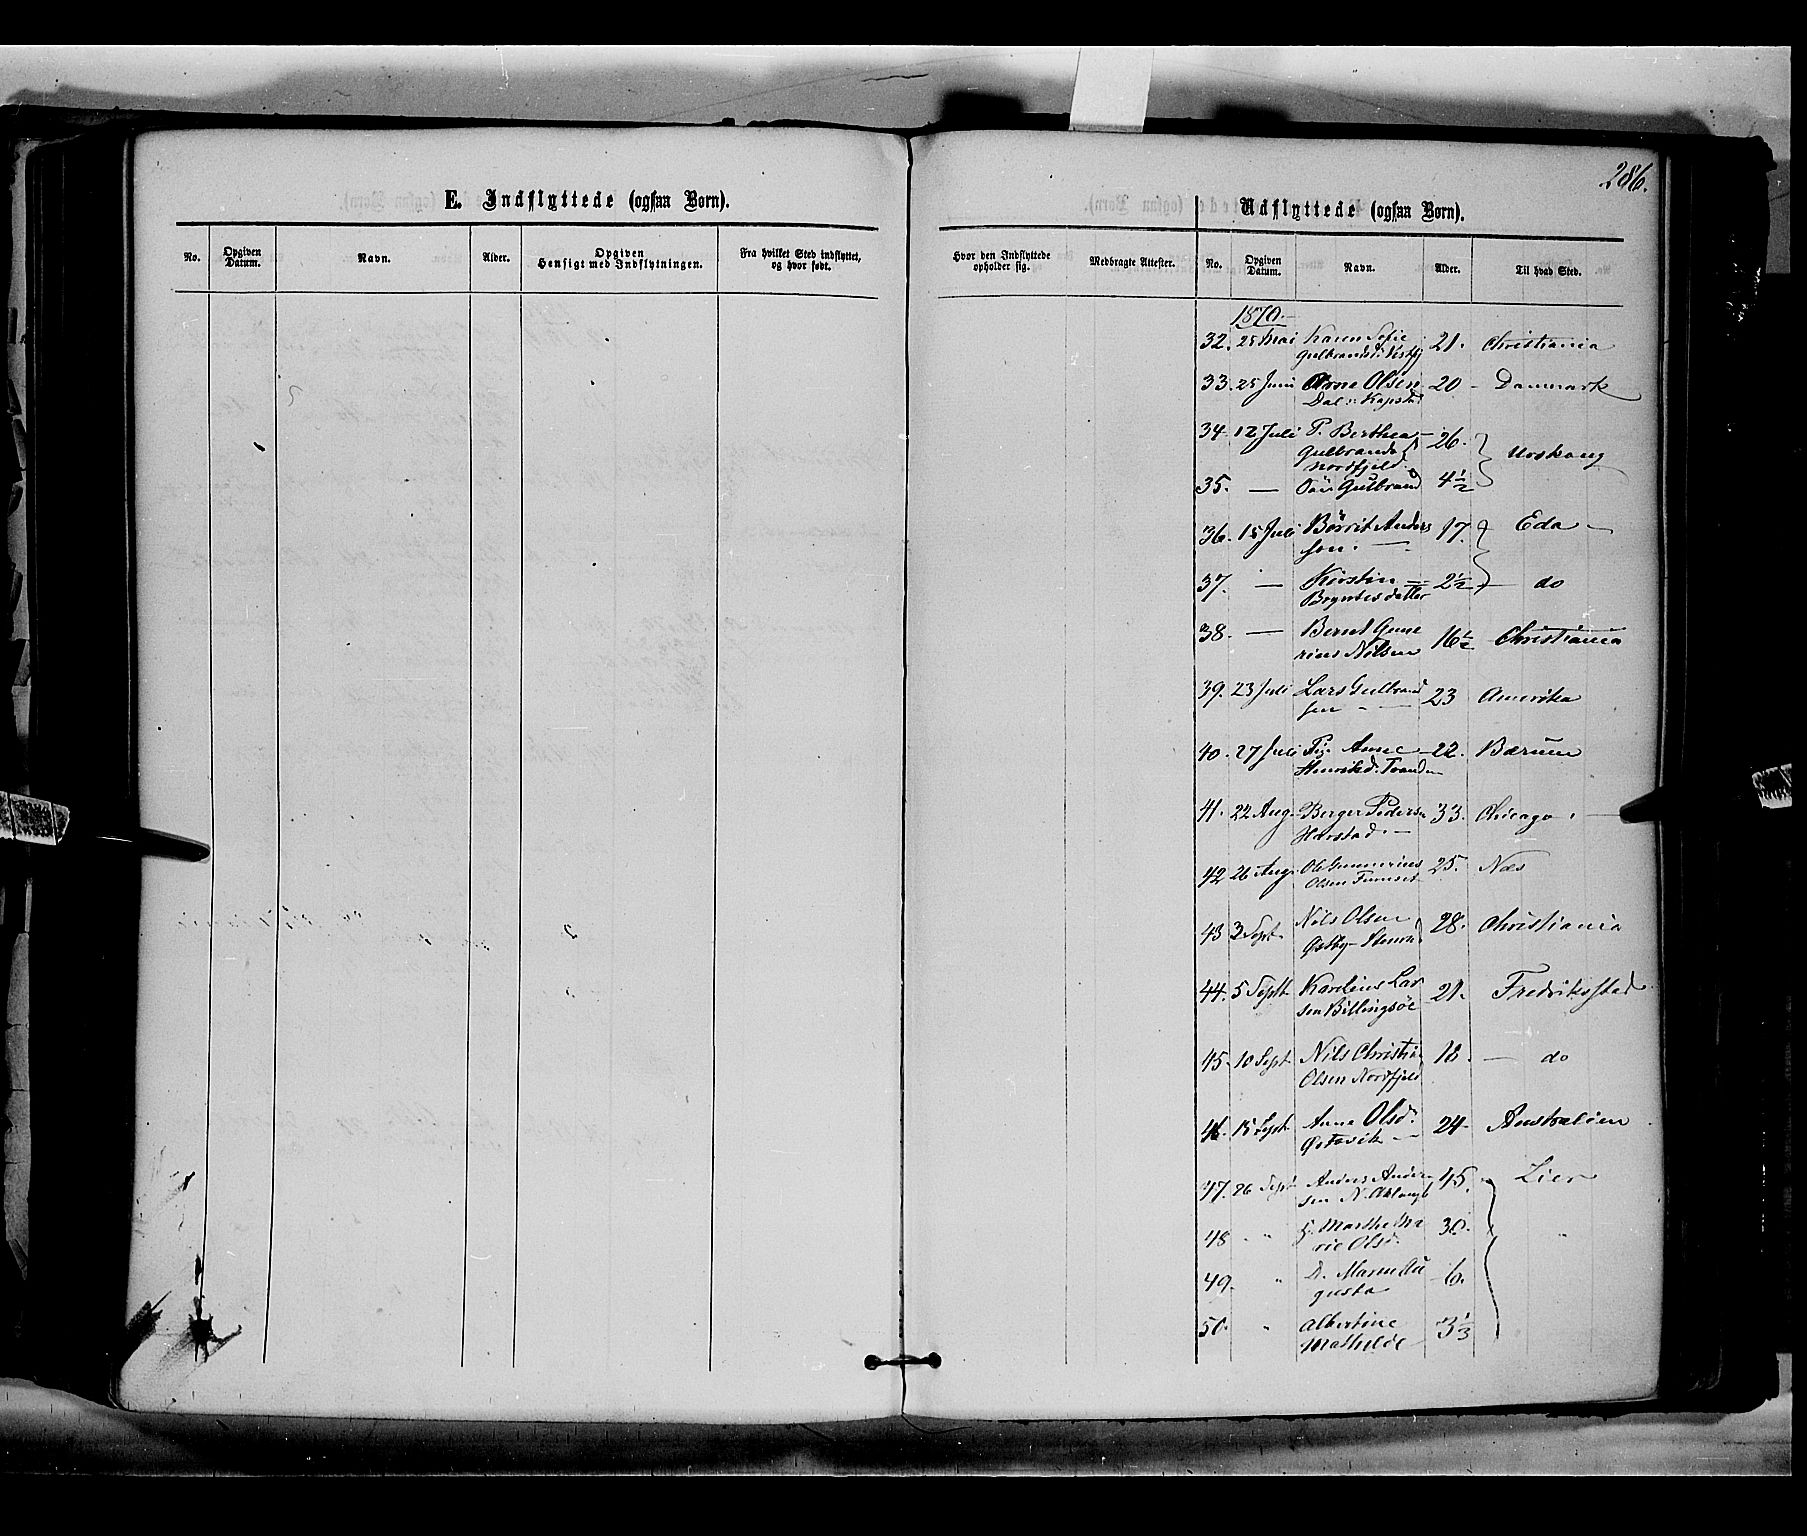 286.
E. Indflyttede (ogsaa Børn).
Udflyttede (ogsaa Børn).
No. Opgiven Datum. Navn. Alder. Opgiven Hensigt med Indflytningen. Fra hvilket Sted indflyttet, og hvor født.
Hvor den Indflyttede opholder sig. Medbragte Attester. No. Opgiven Datum. Navn. Alder. Til hvad Sted.
1870.
32. 25 Mai Karen Sofie 21. Christiania
Gulbrandsd.
33. 25 Juni Arne Olsen 20 - Danmark
Dal
34. 12 Juli P. Berthea 26. Urskoug
Gulbrandsd
Nordfjeld.
35. — Gulbrand 4 1/2
36. 15 Juli Börrit Anders 17. Eda —
son. —
37. — Kirstin 2 1/2 — do
Bryntesdatter
38. — Bernt Gune 16 1/2 Christiania
rius Nilsen
39. 23 Juli Lars Gulbrand 23 Amerika
sen
40. 27 Juli Pige Anne 22. Bærum
Henriksd.
41. 22 Aug. Berger Peders 33. Chicago
Harstad. —
42 26 Aug. Ole Gunnerius 25. Næs
Olsen
43 3 Sept. Nils Olsen 28. Christiania
Østby
44. 5 Septt Karelius Lar 21. Fredrikstad
sen Billingsöe
45. 10 Sept Nils Christia 18. — do
Olsen Nordfjeld
46. 15 Sept Anne Olsd. 24. Australien
47. 26 Sept Anders Ander 45. Lier
sen N.
48 " " Marthe Ma 30. "
rie Olsd.
49. " D. Maren Au 6.
gusta
50. " Albertine 3 1/3
Mathilde